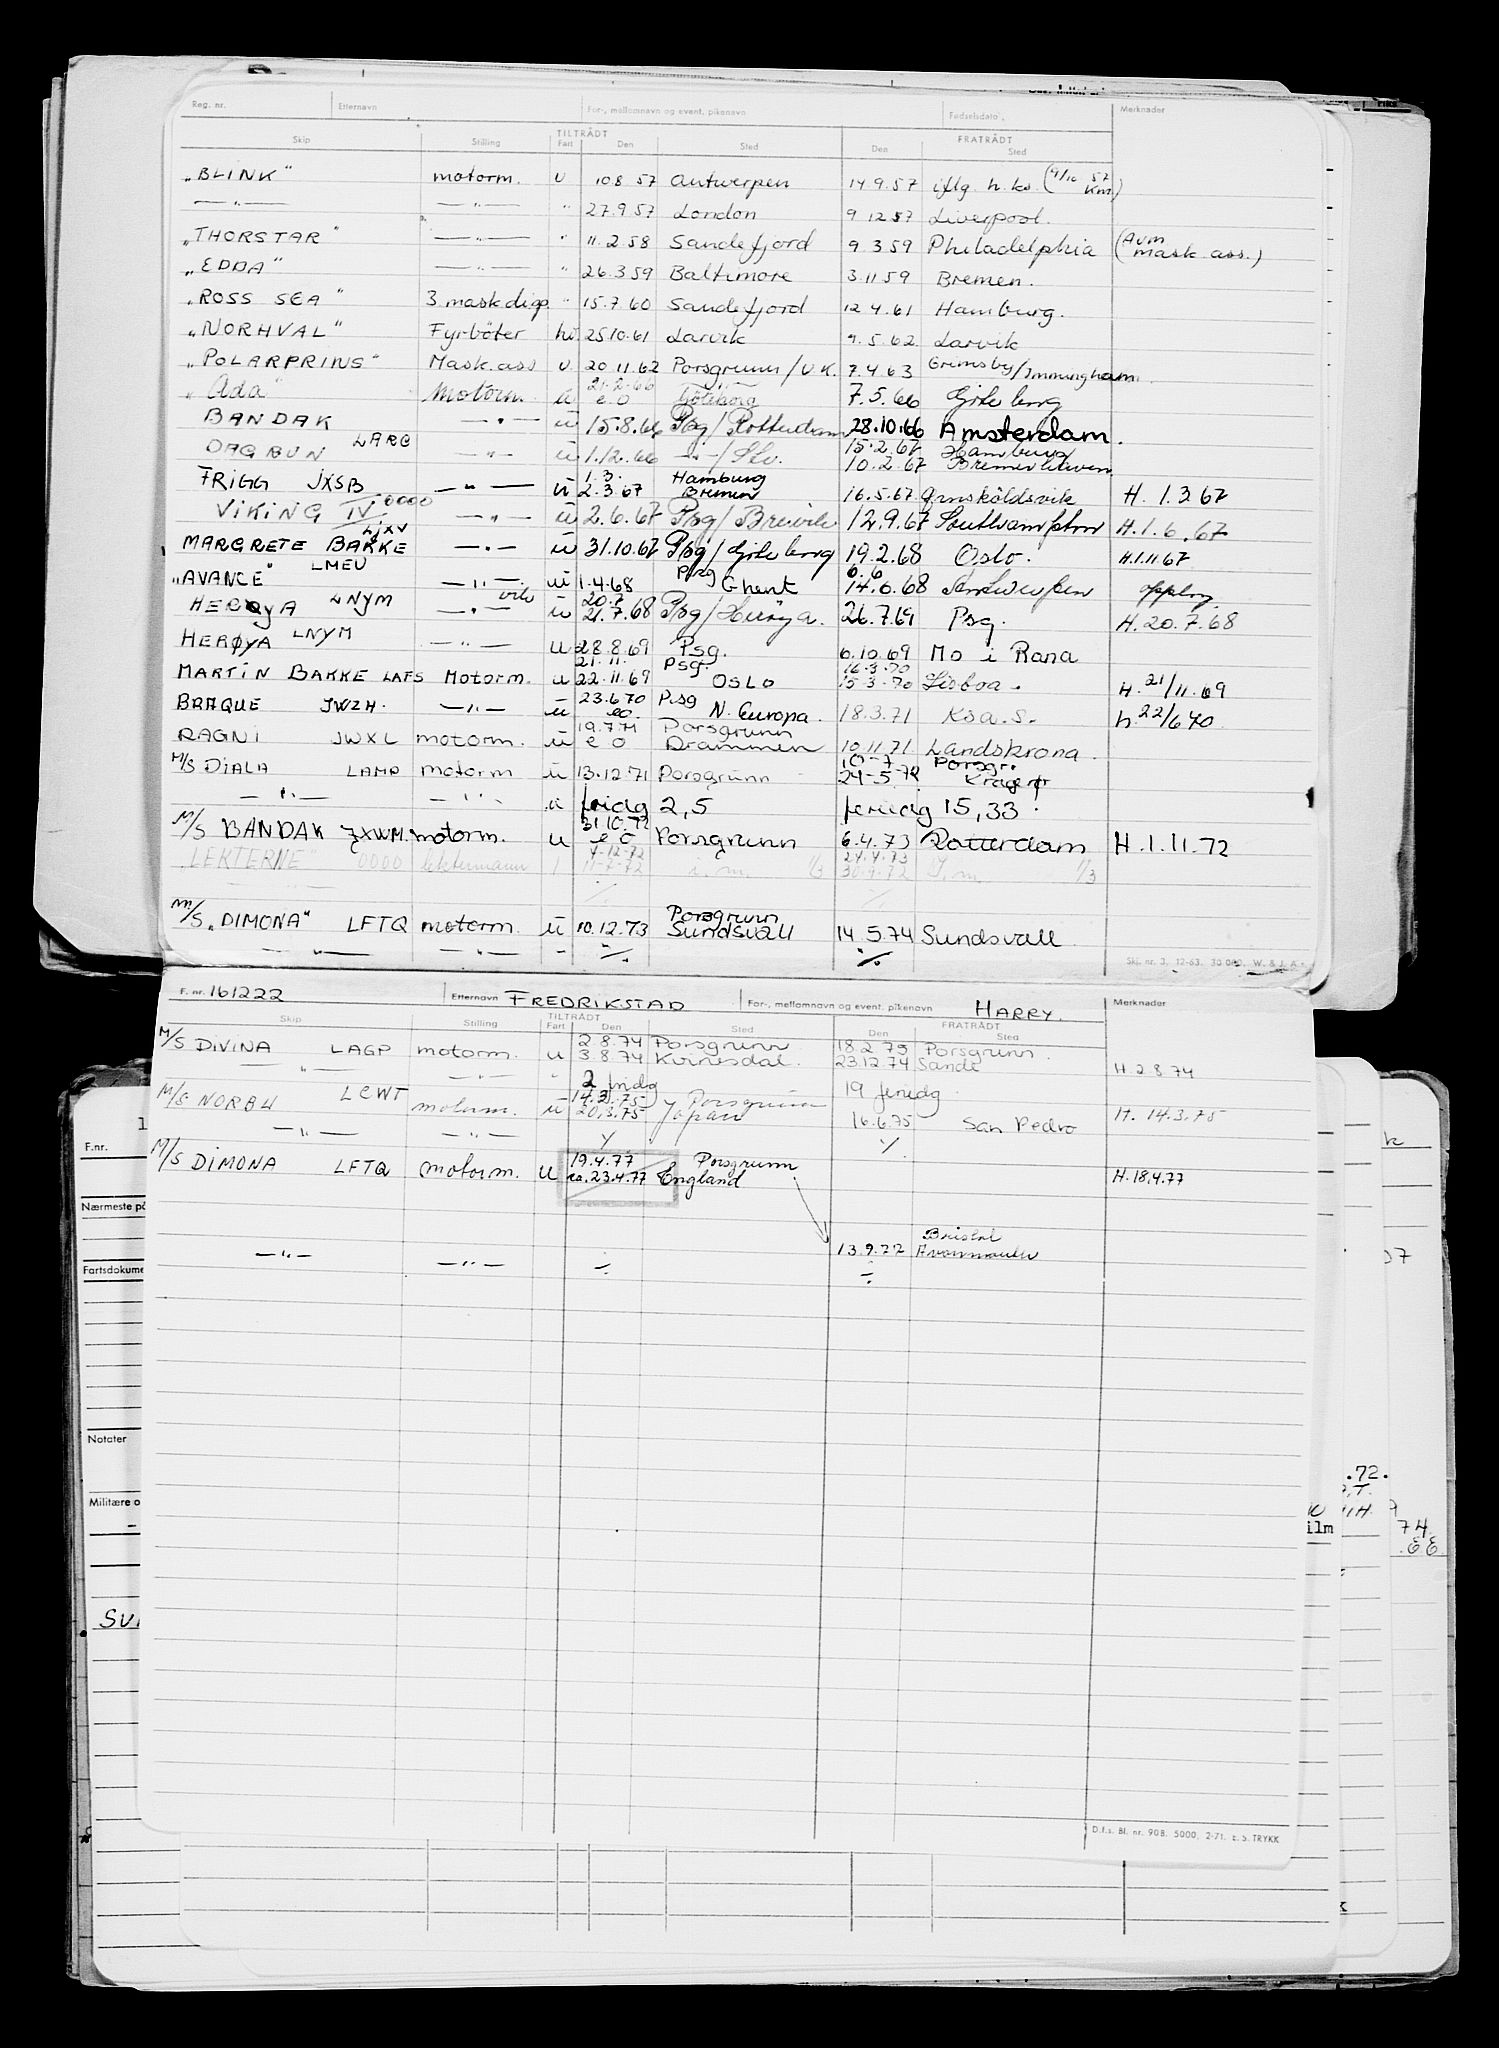 Reg. nr. Etternavn For-, mellomnavn og event. pikenavn Fødselsdato Merknader
TILTRÅDT FRATRÅDT
Skip Stilling Fart Den Sted Den Sted
"BLINK" motorm. u 10.8 57 Antwerpen 14.9.57 iflg. h. ks. (9/10 57 Km.)
—"— —"— " 27.9.57 London 9 12 57 Liverpool.
"THORSTAR" —"— " 11.2.58 Sandefjord 9.3.59 Philadelphia (Avm mask ass.)
"EDDA" —"— " 26.3.59 Baltimore 3.11.59 Bremen.
"ROSS SEA" 3 mask.disp. " 15.7.60 Sandefjord 12 4.61 Hamburg.
"NORHVAL" Fyrbøter hv. 25.10.61 Larvik 9.5.62 Larvik
"POLARPRINS" Mask.ass u 20.11.62 Porsgrunn/U.K. 7.4.63 Grimsby/Immingham
"Ada" Motorm. u 21.2.66 e.o Göteborg 7.5.66 Göteborg
BANDAK —"— u 15.8.66 Psg/Rotterdam 28.10.66 Amsterdam.
DAGRUN LARG —"— u 1.12.66 —"—/Slv. 15.2.67 Hamburg
10.2.67 Bremerhaven
FRIGG JXSB —"— u 1.3. Hamburg
2.3.67 Bremen 16.5.67 Ørnsköldsvik H. 1.3 67
VIKING IV 0000 —"— u 2.6.67 Psg/Brevik 12.9.67 Southampton H.1.6.67
MARGRETE BAKKE LJXV —"— u 31.10.67 Psg/Göteborg 19.2.68 Oslo. H.1.11 67
"AVANCE" LMEU —"— u 1.4.68 Psg Ghent 6.6
14.6.68 Antwerpen oppbrg.
HERØYA LNYM —"— vik u 20.7
21.7.68 Psg/Herøya. 26.7.69 Psg. H.20.7.68
HERØYA LNYM —"— u 28.8.69 Psg. 6.10.69 Mo i Rana
MARTIN BAKKE LAFS Motorm. u 21.11. Psg. 16.3.70
22.11.69 OSLO 15.3.70 Lisboa. H.21/11.69
BRAQUE JWZH. —"— u 23.6.70 Psg
eo. N. Europa. 18.3.71 Ksa.S. h.22/6 70
RAGNI JWXL motorm. u 19.7.71 Porsgrunn
e o Drammen 10.11.71 Landskrona.
M/S DIALA LAMP motorm u 13.12.71 Porsgrunn 10-7 Porsgr.
24-5.72 Kragerø
—"— —"— a fridg 2,5 feriedg 15,33
M/S BANDAK JXWM. motorm. u 31.10.72
e o Porsgrunn 6.4.73 Rotterdam H.1.11.72
"LEKTERNE" 0000 lektermann 1 7-12-72
11-7-72 i.m. 1/3 24.4.73
30.9.72 I.m. 1/3
M/S "DIMONA" LFTQ motorm. u 10.12.73 Porsgrunn
Sundsvall 14.5.74 Sundsvall
—"— —"— - ./. ./.
Skj. nr. 3, 12-63. 30 000. W. & J. A.
F. nr. 161222 Etternavn FREDRIKSTAD For-, mellomnavn og event. pikenavn HARRY. Merknader
TILTRÅDT FRATRÅDT
Skip Stilling Fart Den Sted Den Sted
M/S DIVINA LAGP motorm. u 2.8.74 Porsgrunn 18.2.75 Porsgrunn.
3.8.74 Kvinesdal. 23.12.74 Sande H.2.8.74
—"— —"— " 2 fridg 19 feriedg
M/S NORBU LCWT motorm. u 14.3.75 Porsgrunn
20.3.75 Japan 16.6.75 San Pedro H. 14.3.75
—"— —"— ./. ./.
M/S DIMONA LFTQ motorm. u 19.4.77 Porsgrunn
ca.23.4.77 England H.18.4.77
Bristol
—"— 13.9.77 Avonmouth
—"— ./. ./.
D.f.s. Bl. nr. 90B. 5000, 2-71. E. S. TRYKK
F.nr.
Nærmeste på
Fartsdokume
Notater
Militære o
SV
.72.
ilm
74